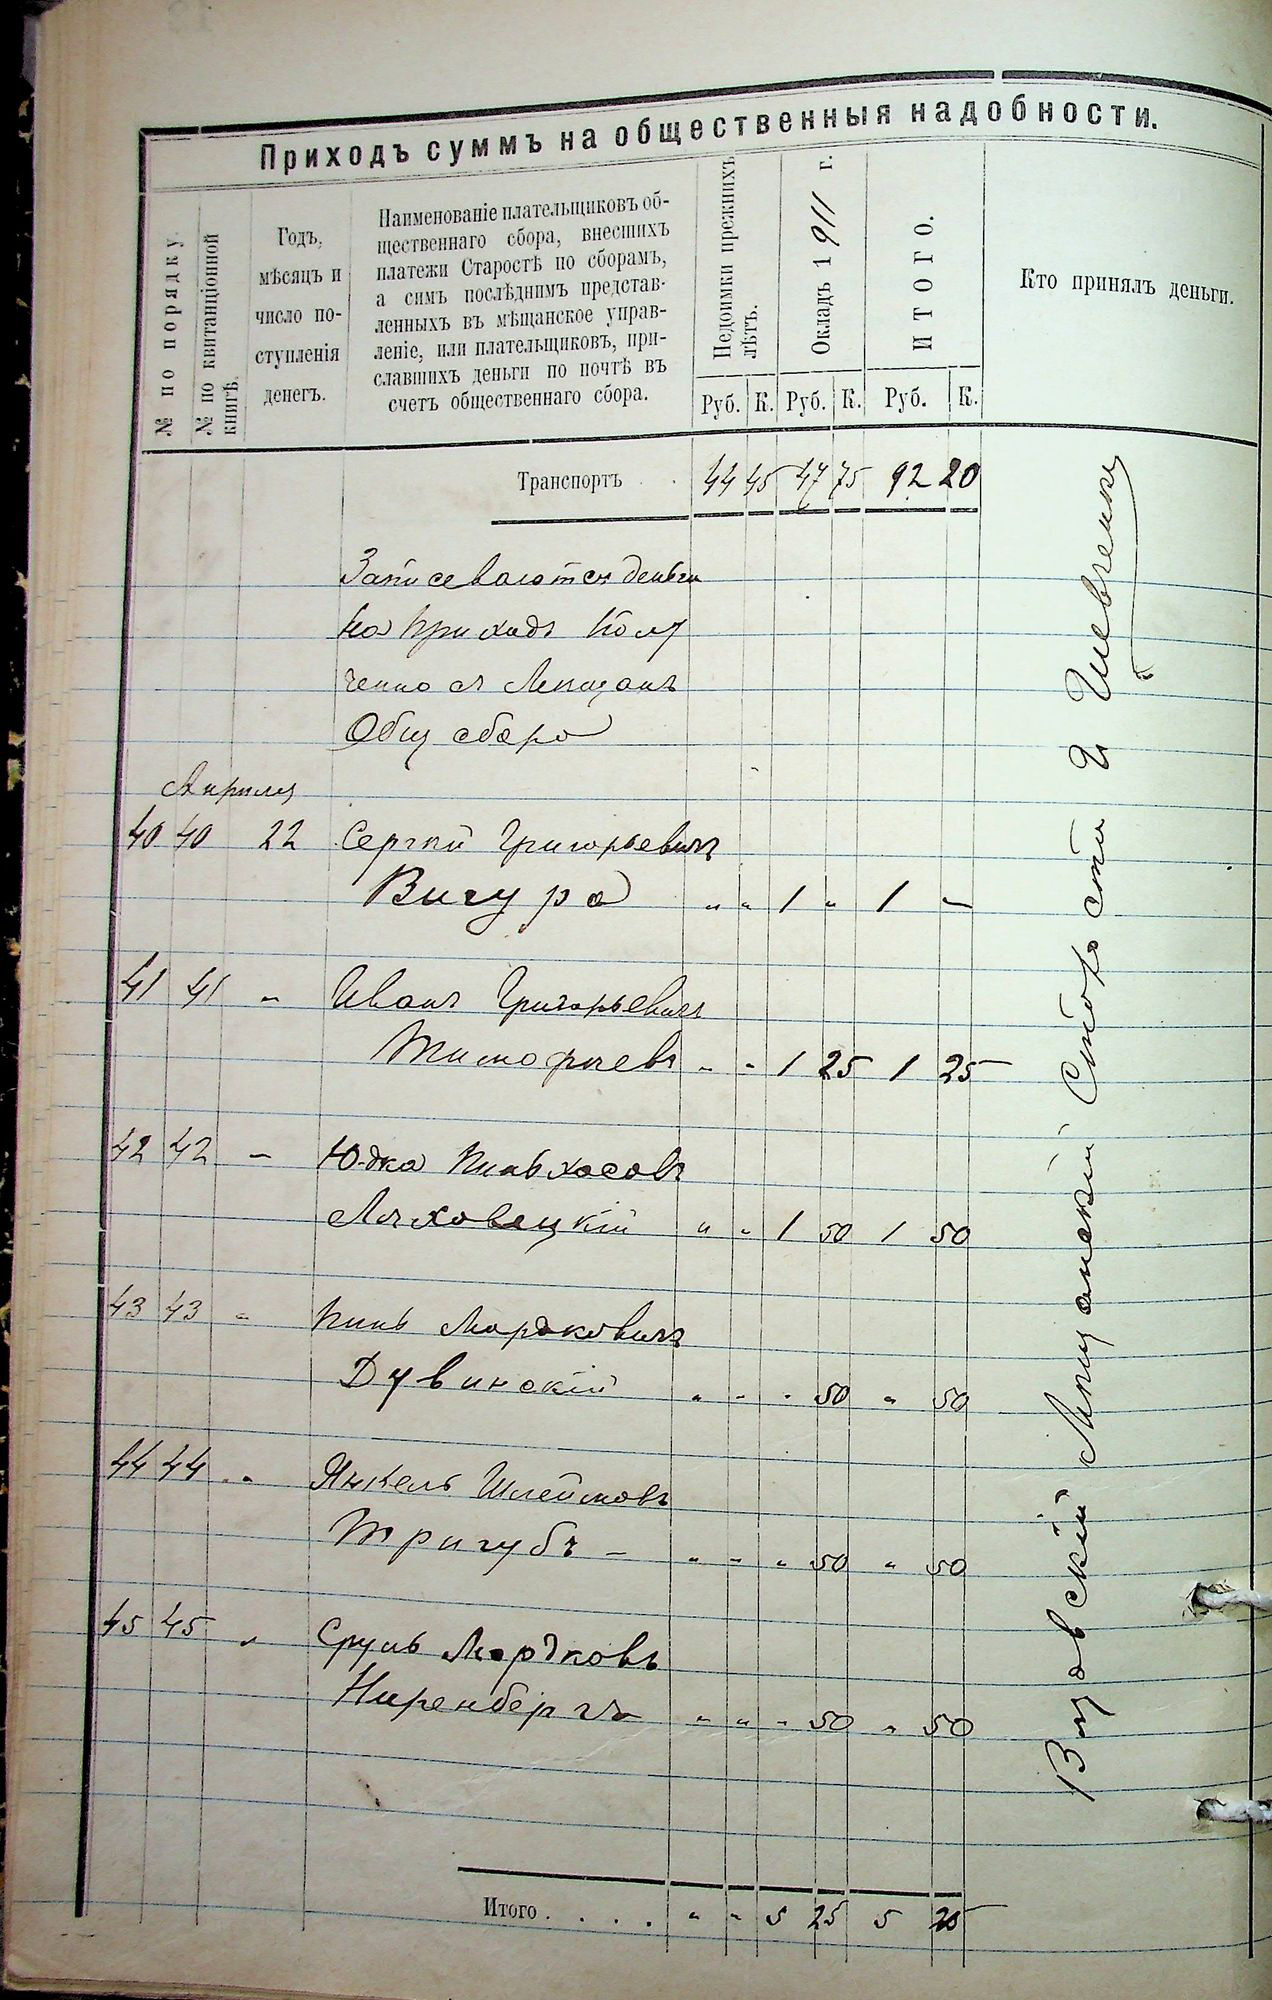 Приходъ суммъ на общественныя надобности.
№ по порядку.
№ по квитанціонной
книгѣ.
Годъ,
мѣсяцъ и
число по-
ступленія
денегъ.
Наименованіе плательщиковъ об-
щественнаго сбора, внесшихъ
платежи Старостѣ по сборамъ,
а симъ послѣднимъ представ-
ленныхъ въ мѣщанское управ-
леніе, или плательщиковъ, при-
славшихъ деньги по почтѣ въ
счетъ общественнаго сбора.
Недоимки прежнихъ
лѣтъ.
Окладъ 1911 г.
ИТОГО.
Кто принялъ деньги.
Руб. К. Руб. К. Руб. К.
Транспортъ . . 44 45 47 75 92 20
Записеваются деньги
на приходъ полу
ченно съ Мещанъ
Общ сбора
Апреля
40 40 22 Сергей Григорьевичъ
Вигура " " 1 " 1 –
41 41 – Иванъ Григорьевичъ
Тимофеевъ – - 1 25 1 25
42 42 – Юдка Пиньхасовъ
Ляховецкій " " 1 50 1 50
43 43 " Пинь Мордковичъ
Дувинскій " - - 50 " 50
44 44 - Янкель Шлеймовъ
Тригубъ – " – " 50 " 50
45 45 " Сруль Мордковъ
Ниренбергъ " " - 50 " 50
Мещанскій Староста И Шевченко
Итого . . . . " " 5 25 5 25